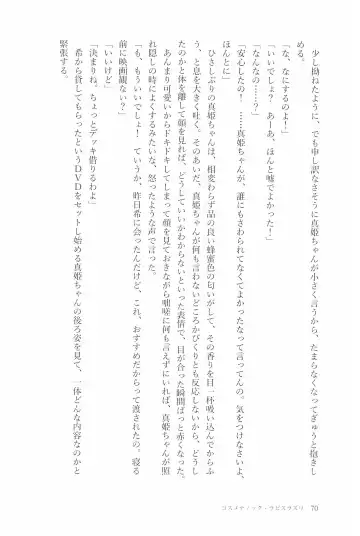 少し拗ねたように、でも申し訳なさそうに真姫ちゃんが小さく言うから、たまらなくなってぎゅうと抱きし
める。
「な、なにするのよ!」
「いいでしょ? あーあ、ほんと嘘でよかった!」
「なんなの……?」
「安心したの! ……真姫ちゃんが、誰にもさわられてなくてよかったなって言ってんの。気をつけなさいよ、
ほんとに」
ひさしぶりの真姫ちゃんは、相変わらず品の良い蜂蜜色の匂いがして、その香りを目一杯吸い込んでからふ
う、と息を大きく吐く。そのあいだ、真姫ちゃんが何も言わないどころかぴくりとも反応しないから、どうし
たのかと体を離して顔を見れば、どうしていいかわからないといった表情で、目が合った瞬間ぱっと赤くなった。
あんまり可愛いからドキドキしてしまって顔を見ておきながら咄嗟に何も言えずにいれば、真姫ちゃんが照
れ隠しの時によくするみたいな、怒ったような声で言った。
「も、もういいでしょ! ていうか、昨日希に会ったんだけど、これ、おすすめだからって渡されたの。寝る
前に映画観ない?」
「いいけど」
「決まりね。ちょっとデッキ借りるわよ」
希から貸してもらったというDVDをセットし始める真姫ちゃんの後ろ姿を見て、一体どんな内容なのかと
緊張する。
コスメティック・ラピスラズリ
70